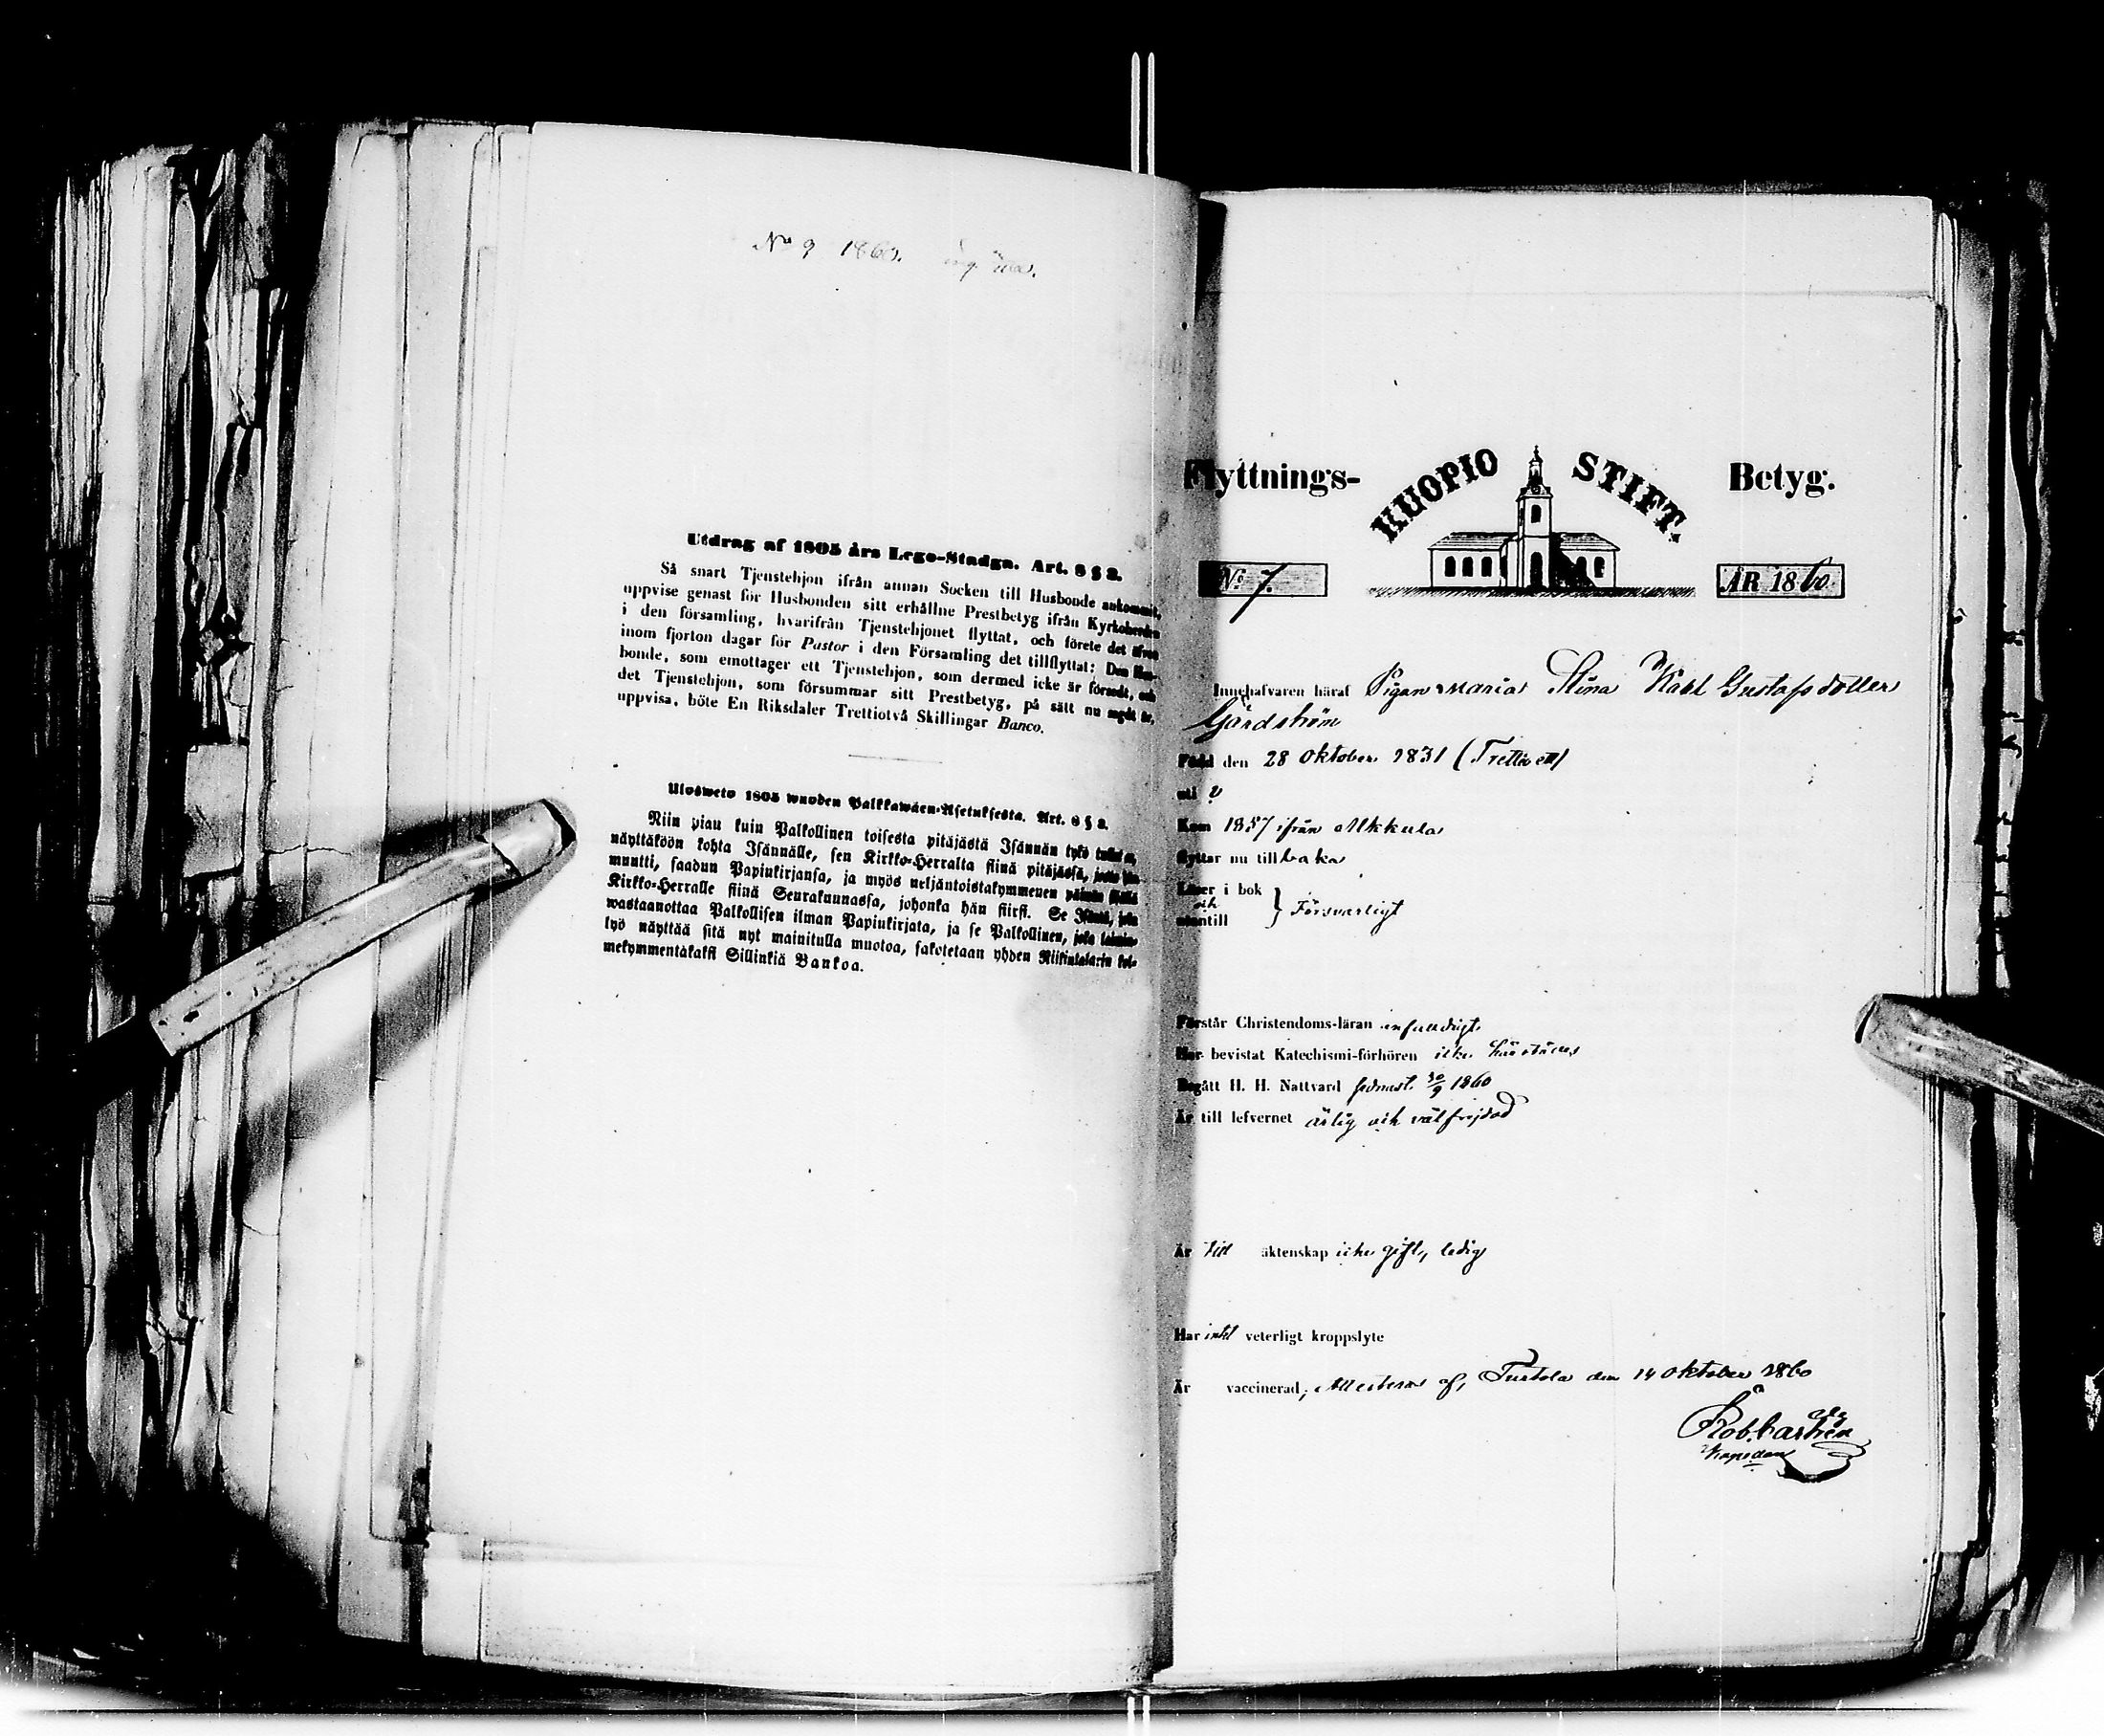 No 9 1860.
Utdrag af 1805 års Lego-Stadga. Art. 8 § 2.
Så snart Tjenstehjon ifrån annan Socken till Husbonde ankommit,
uppvise genast för Husbonden sitt erhållne Prestbetyg ifrån Kyrkoherden
i den församling, hvarifrån Tjenstehjonet flyttat, och förete det äfven
inom fjorton dagar för Pastor i den Församling det tillflyttat: Den Hus-
bonde, som emottager ett Tjenstehjon, som dermed icke är försedt, och
det Tjenstehjon, som försummar sitt Prestbetyg, på sätt nu sagdt är,
uppvisa, böte En Riksdaler Trettiotvå Skillingar Banco.
Ulosweto 1805 wuoden Palkkawäen-Asetuksesta. Art. 8 § 2.
Niin pian kuin Palkollinen toisesta pitäjästä Isännän tykö tullut on,
näyttäköön kohta Isännälle, sen Kirkko-Herralta siinä pitäjässä, josta hän
muutti, saadun Papinkirjansa, ja myös neljäntoistakymmenen päiwän sisällä
Kirkko-Herralle siinä Seurakunnassa, johonka hän siirsi. Se Isäntä, joka
wastaanottaa Palkollisen ilman Papinkirjata, ja se Palkollinen, joka laimin-
lyö näyttää sitä nyt mainitulla muotoa, sakotetaan yhden Riikintalarin kol-
mekymmentäkaksi Sillinkiä Bankoa.
Flyttnings- KUOPIO STIFT. Betyg.
No 7. ÅR 1860.
Innehafvaren häraf Pigan Maria Stina Karl Gustafsdotter
Gårdström
Född den 28 Oktober 1831 (Trettioett)
uti
Kom 1857 ifrån Alkkula
flyttar nu tillbaka
Läser i bok
och
utantill } Försvarligt
Förstår Christendoms-läran enfaldigt.
Har bevistat Katechismi-förhören icke härstädes
Begått H. H. Nattvard sednast 30/9 1860
Är till lefvernet ärlig och välfrejdad
Är till äktenskap icke gift, ledig
Har intet veterligt kroppslyte
Är vaccinerad, Attesteras af, Turtola den 14 Oktober 1860
Rob. Castrén